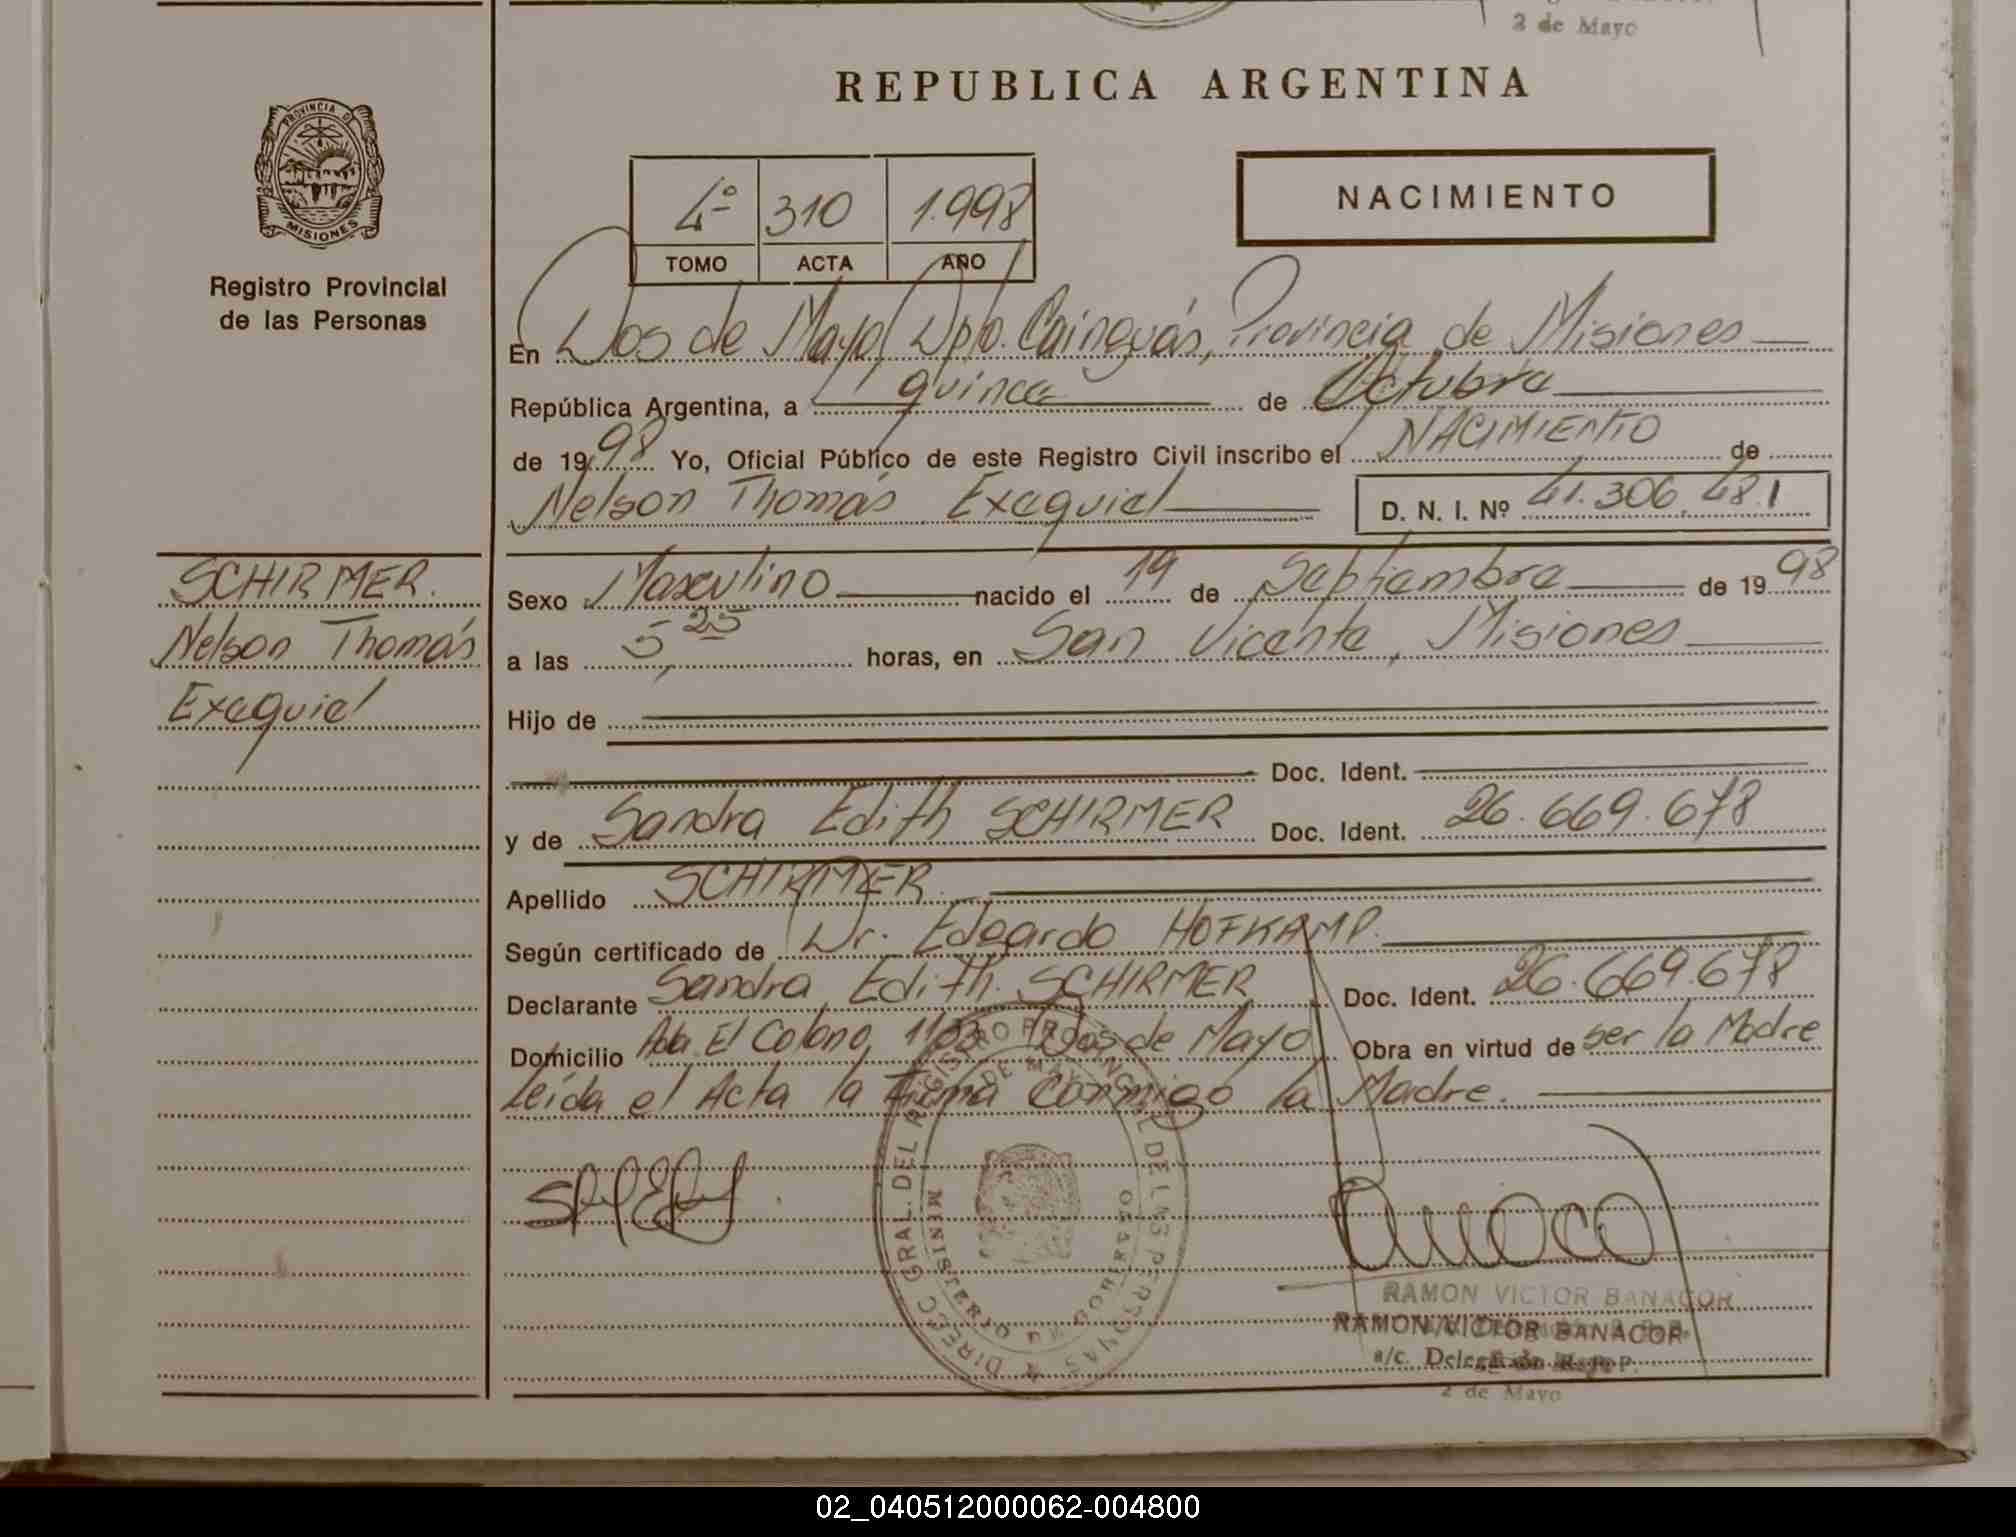 2 de Mayo
REPUBLICA ARGENTINA
PROVINCIA D
MISIONES
Registro Provincial
de las Personas
4º 310 1.998
TOMO ACTA AÑO
NACIMIENTO
En Dos de Mayo, Dpto. Cainguás, Provincia de Misiones
República Argentina, a quince de Octubre
de 1998 Yo, Oficial Público de este Registro Civil inscribo el NACIMIENTO de
Nelson Thomás Exequiel D. N. I. Nº 41.306.481
SCHIRMER.
Nelson Thomás
Exequiel
Sexo Masculino nacido el 19 de Septiembre de 1998
a las 5,25 horas, en San Vicente, Misiones
Hijo de
Doc. Ident.
y de Sandra Edith SCHIRMER Doc. Ident. 26.669.678
Apellido SCHIRMER
Según certificado de Dr. Edgardo HOFKAMP.
Declarante Sandra Edith SCHIRMER Doc. Ident. 26.669.678
Domicilio Avda. El Colono, Dos de Mayo Obra en virtud de ser la Madre
Leída el Acta la Firma Conmigo la Madre.
DIREC. GRAL. DEL REGISTRO PROVINCIAL DE LAS PERSONAS
DE MAYO
MINISTERIO GOBIERNO
RAMON VICTOR BANACOR
RAMON VICTOR BANACOR
a/c. Delegación R. P. P.
2 de Mayo
02_040512000062-004800